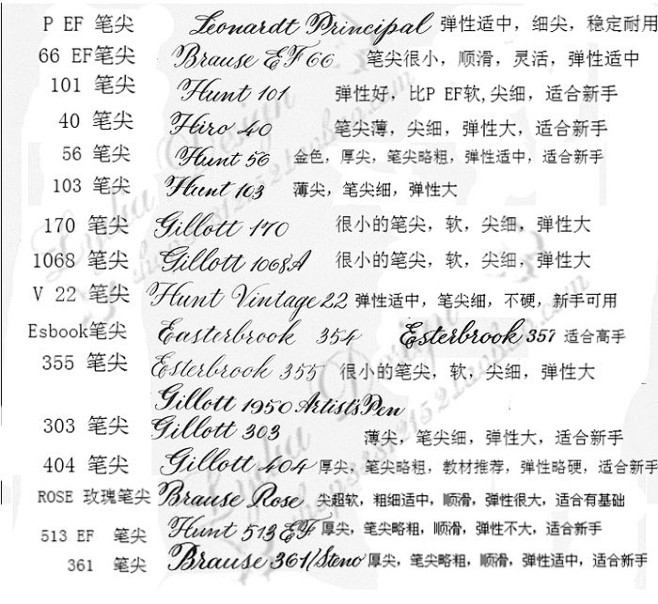 P EF 笔尖 Leonardt Principal 弹性适中，细尖，稳定耐用
66 EF笔尖 Brause EF 66 笔尖很小，顺滑，灵活，弹性适中
101 笔尖 Hunt 101 弹性好，比P EF软,尖细，适合新手
40 笔尖 Hiro 40 笔尖薄，尖细，弹性大，适合新手
56 笔尖 Hunt 56 金色，厚尖，笔尖略粗，弹性适中，适合新手
103 笔尖 Hunt 103 薄尖，笔尖细，弹性大
170 笔尖 Gillott 170 很小的笔尖，软，尖细，弹性大
1068 笔尖 Gillott 1068A 很小的笔尖，软，尖细，弹性大
V 22 笔尖 Hunt Vintage 22 弹性适中，笔尖细，不硬，新手可用
Esbook笔尖 Easterbrook 354 Esterbrook 357 适合高手
355 笔尖 Esterbrook 355 很小的笔尖，软，尖细，弹性大
Gillott 1950 Artist's Pen
303 笔尖 Gillott 303 薄尖，笔尖细，弹性大，适合新手
404 笔尖 Gillott 404 厚尖，笔尖略粗，教材推荐，弹性略硬，适合新手
ROSE 玫瑰笔尖 Brause Rose 尖超软，粗细适中，顺滑，弹性很大，适合有基础
513 EF 笔尖 Hunt 513 EF 厚尖，笔尖略粗，顺滑，弹性不大，适合新手
361 笔尖 Brause 361/Steno 厚尖，笔尖略粗，顺滑，弹性适中，适合新手